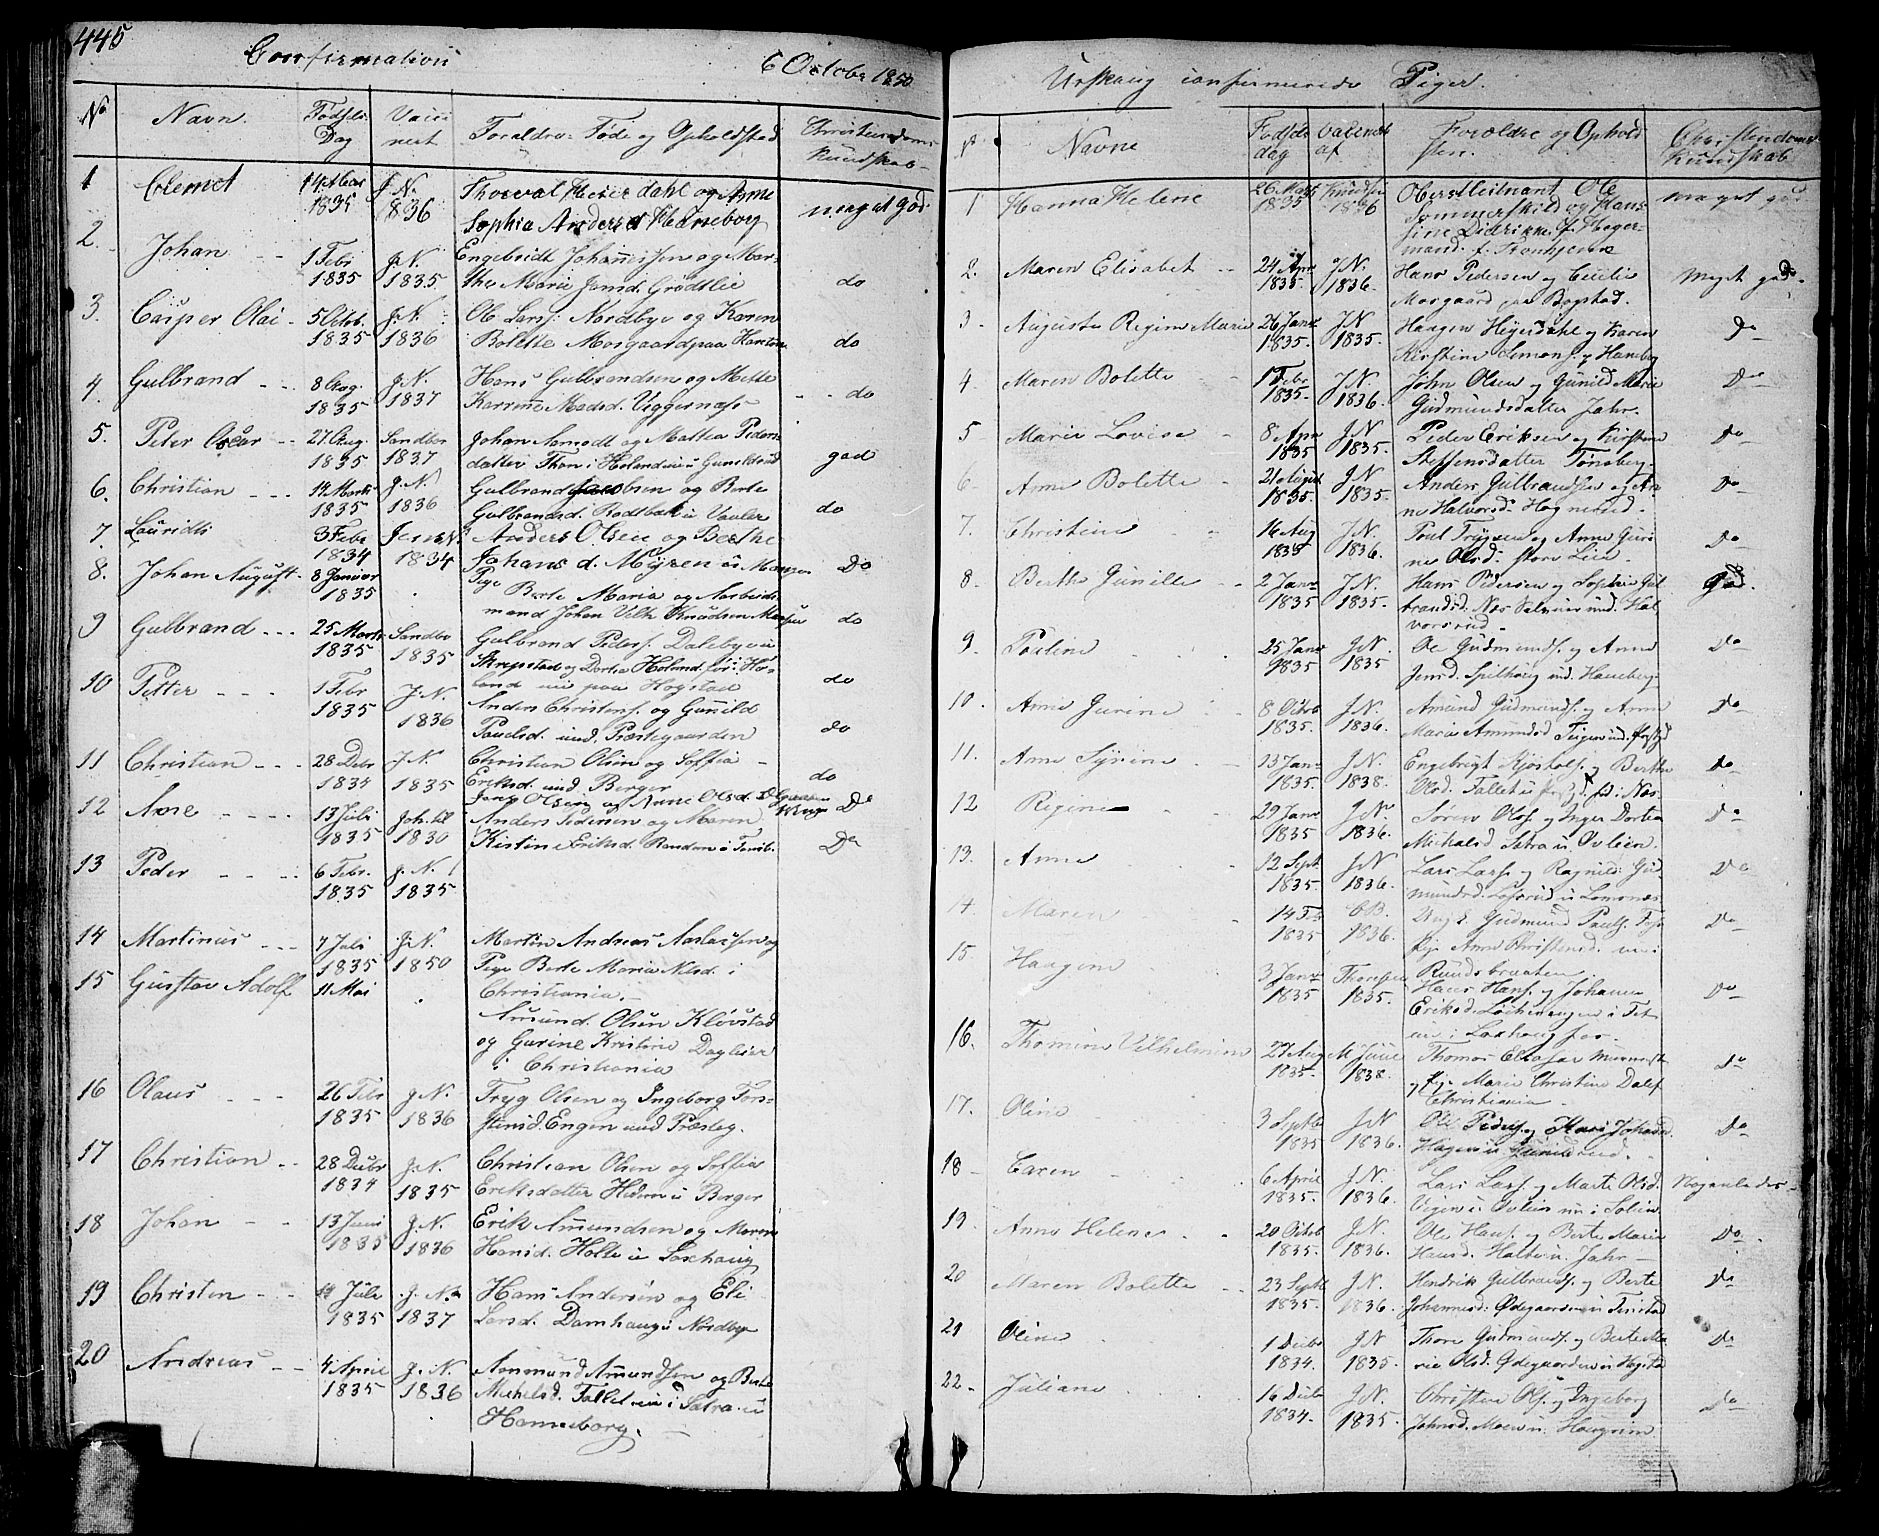 445
Confirmation 6 October 1850
No Navn. Fødsels Dag Vacci nert Foraldre: Føde og Opholdstad Christendoms Kundskab
1 Clemet 14 Mai 1835 J.N. 836 Thorval Heier dahl og Anne Sophia Andersd Hanneborg meget god
2. Johan 1 Febr 1835 J.N. 1835. Engebridt Johannessen og Mar- the Marie Jensd. Grødtlie do
3. Casper Olai 5 Octob. 1835 J.N. 1836 Ole Lars: Nordbye og Karen Bolette Morgaard paa do
4. Gulbrand 8 Aug. 1835 J.N. 1837 Hans Gulbrandsen og Mette Karrine Madsd. Viggernæs do
5. Peter Oscar 27 Aug. 1835 Sandbo 1837 Johan og Mattea Peders datter god
6. Christian 14 Marts 1835 J.N. 1836 Gulbrand Jacobsen og Berte Gulbrandsd. do
7. Lauridts 3 Febr 1834 Jens N. 1834 Anders Olsen og Berthe Johans d. Myren Do
8. Johan August 8 Januar 1835 Pige Berte Maria og Arbeids mand Johan Vilh Knudsen do
9 Gulbrand 25 Marts 1835 Sandbo 1835 Gulbrand Peders. Dalebye u Skrepstad og Dortea Holand
10 Petter 1 Febr 1835 J.N 1836 land nu paa Hogstad do
Anders Christens. og Gunild Paulsd. und. Præstegaarden do
11 Christian 28 Debr 1834 J.N. 1835 Christian Olsen og Soffia Eriksd. und Berger do
12 Arre 13 Juli 1835 Joh. 1830 Jens Olsen og Anne Olsd. Do
Anders Pedersen og Maren Kistine Eriksd. Do
13 Peder 6 Febr. 1835 J.N. 1835
14 Martinus 7 Juli 1835 J.N. 1850 Martin Andreas Aslaksen og Pige Berte Maria Nilsd. i
15 Gustav Adolf 11 Mai Christiania.
Amund. Olsen Kløvstad og Gurine Kristine Daglier i Christiania
16 Olaus 26 Febr 1835 J.N. 1836 Tryg Olsen og Ingeborg Tor- stensd. Engen und Præsteg.
17 Christian 28 Debr 1834 J.N. 1835 Christian Olsen og Soffia Eriksdatter u Berger
18 Johan 13 Juni 1835 J.N. 1836 Erik Amundsen og Maren Hansd. Holte u
19 Christen 14 Juli 1835 J.N. 1837 Hans Andersen og Eli Larsd. Damhaug u Nordbye
20 Andreas 4 April 1835 J.N. 1836 Aamund Amundsen og Berte Michelsd. Fallet nu i Sætra u Hanneborg.
Urskoug confirmerede Piger.
No Navne Fødsels dag Vaccineret af Forældre og Ophold sted. Christendoms Kundskab
1 Hanna Helene 26 Marts 1835 1836 Oberstleitnant Ole Sommerskild og Hans- sine Didrikke f. Heger- mand. f. Tronhjem meget god
2. Maren Elisabet 24 Apr 1835. J.N. 1836. Hans Pedersen og Cicilie Morgaard paa Bogstad. Meget god
3. Augusta Regine Marie 26 Janr 1835. J.N 1835. Haagen Heyerdahl og Karen Kirstine Simons. Do
4. Maren Bolette 1 Febr 1835. J.N. 1836. John Olsen og Gunild Marie Gudmundsdatter Jahr. Do
5 Marie Lovise 8 Apr 1835 J.N 1835. Peder Eriksen og Kirstine Steffensdatter Tønsberg. Do
6 Anne Bolette 21 August 1835 J.N 1835. Anders Gulbrandsen og An- ne Halvorsd. Hognerud. Do
7. Christine 16 Aug 1835 J.N. 1836. Poul Trygsen og Anne Guri- ne Olsd. store Lien. Do
8 Berthe Gunille 2 Janr 1835. J.N. 1835. Hans Pedersen og Sophie Gul brandsd. Næs und. Hal vorsrud. God.
9. Pauline 25 Janr 1835 J.N. 1835 Ole Gudmunds. og Anne Jensd. Spilhoug und. Haneborg Do
10. Anne Gurine 8 Octob 1835. J.N. 1836. Amund Gudmunds. og Anne Marie Amundsd Do
11. Anne Syrine 13 Janr 1835. J.N. 1838. Engebregt Kjøstols. og Berthe Olsd. Fallet u Do
12 Regine 29 Janr 1835 J.N. 1836. Søren Ols. og Inger Dortea Michalsd Setra u Ovlien. Do
13. Anne 12 Sept. 1835. J.N. 1836. Lars Lars. og Ragnild Gud mundsd. u Lomsnes Do
14. Maren 14 Feb 1835 CB. 1836. Ung k. Gudmund Pauls. og Pige Anne Christensd. nu: Do
15 Haagine 3 Janr 1835 Thoresen 1835. Rundsbraaten
Haus Hans. og Johanne Eriksd. Do
16. Thomine Vilhelmine 27 Aug 1835. M. Juul 1838. Thomas og Pige Marie Christine Christiania Do
17. Oline 3 Septb 1835 J.N 1836. Ole Peders. og Kari Johannsd. Do
18 Caren 6 April 1835. J.N. 1836. Lars Lars. og Marte Olsd. Vigen u Ovlien nu i Solien Nogenledes
19. Anne Helene 20 Octob 1835. J.N. 1836. Ole Hans. og Berte Marie Hansd. Halte u Jahr Do
20 Maren Bolette 23 Septb 1835. J.N. 1836. Hendrik Gulbrands. og Berte Johannesd. Ødegaarden u Do
21 Oline 1 Debr 1834. J.N 1835. Thore Gudmunds. og Berte Ma- rie Olsd. Ødegaarden u Do
22. Juliane 16 Debr 1834. J.N. 1835. Christen Ols. og Ingeborg Johnsd. Moen u. Do